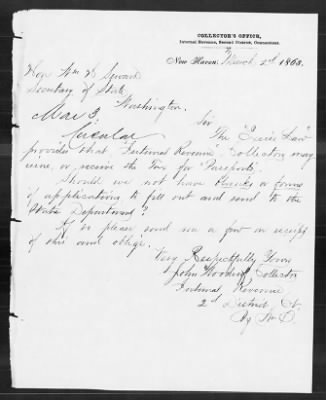 COLLECTOR'S OFFICE,
Internal Revenue, Second District, Connecticut,
New Haven, March 2d 1863.
Hon Wm H Seward
Secretary of State
Washington.
Mar 3,
Circular
Sir
The "Excise Law"
provides that "Internal Revenue" Collectors may
receive the Tax for "Passports.
Should we not have blanks or forms
of applications to fill out and send to the
State Department?
If so please send me a few on receipt
of this and oblige.
Very Respectfully Yours
John Woodruff Collector
Internal Revenue
2d District Ct.